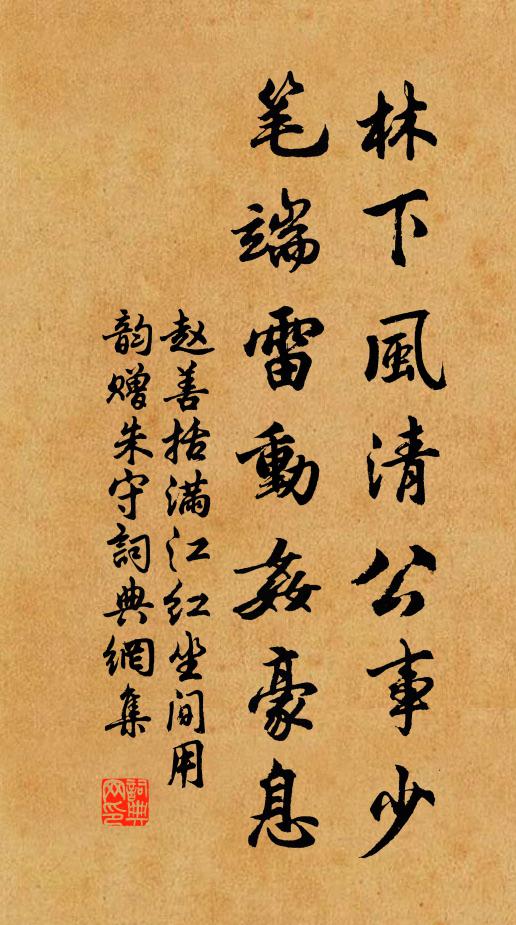 林下風清公事少
笔端雷動姦豪息
赵善括满江红坐间用
韵赠朱守詞典網集
詞典网印